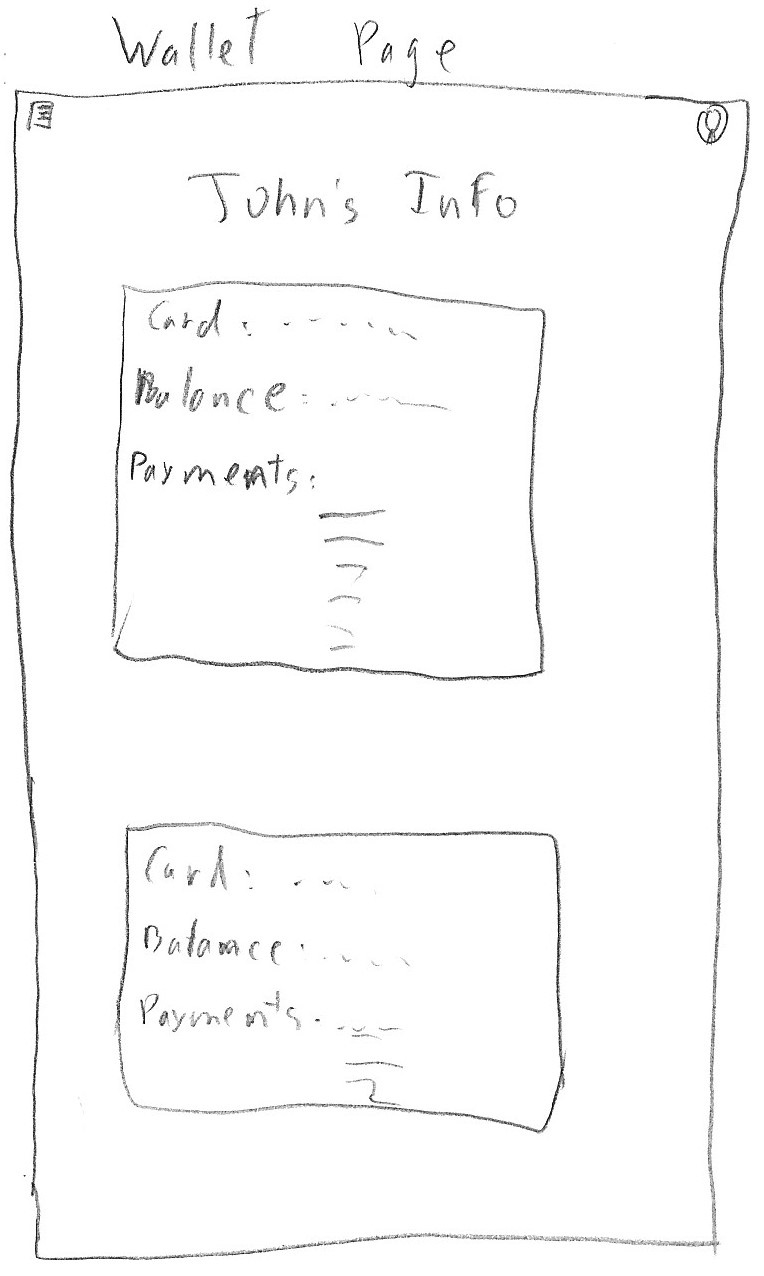 Wallet Page
John's Info
Card:
Balance:
Payments:
Card:
Balance:
Payments